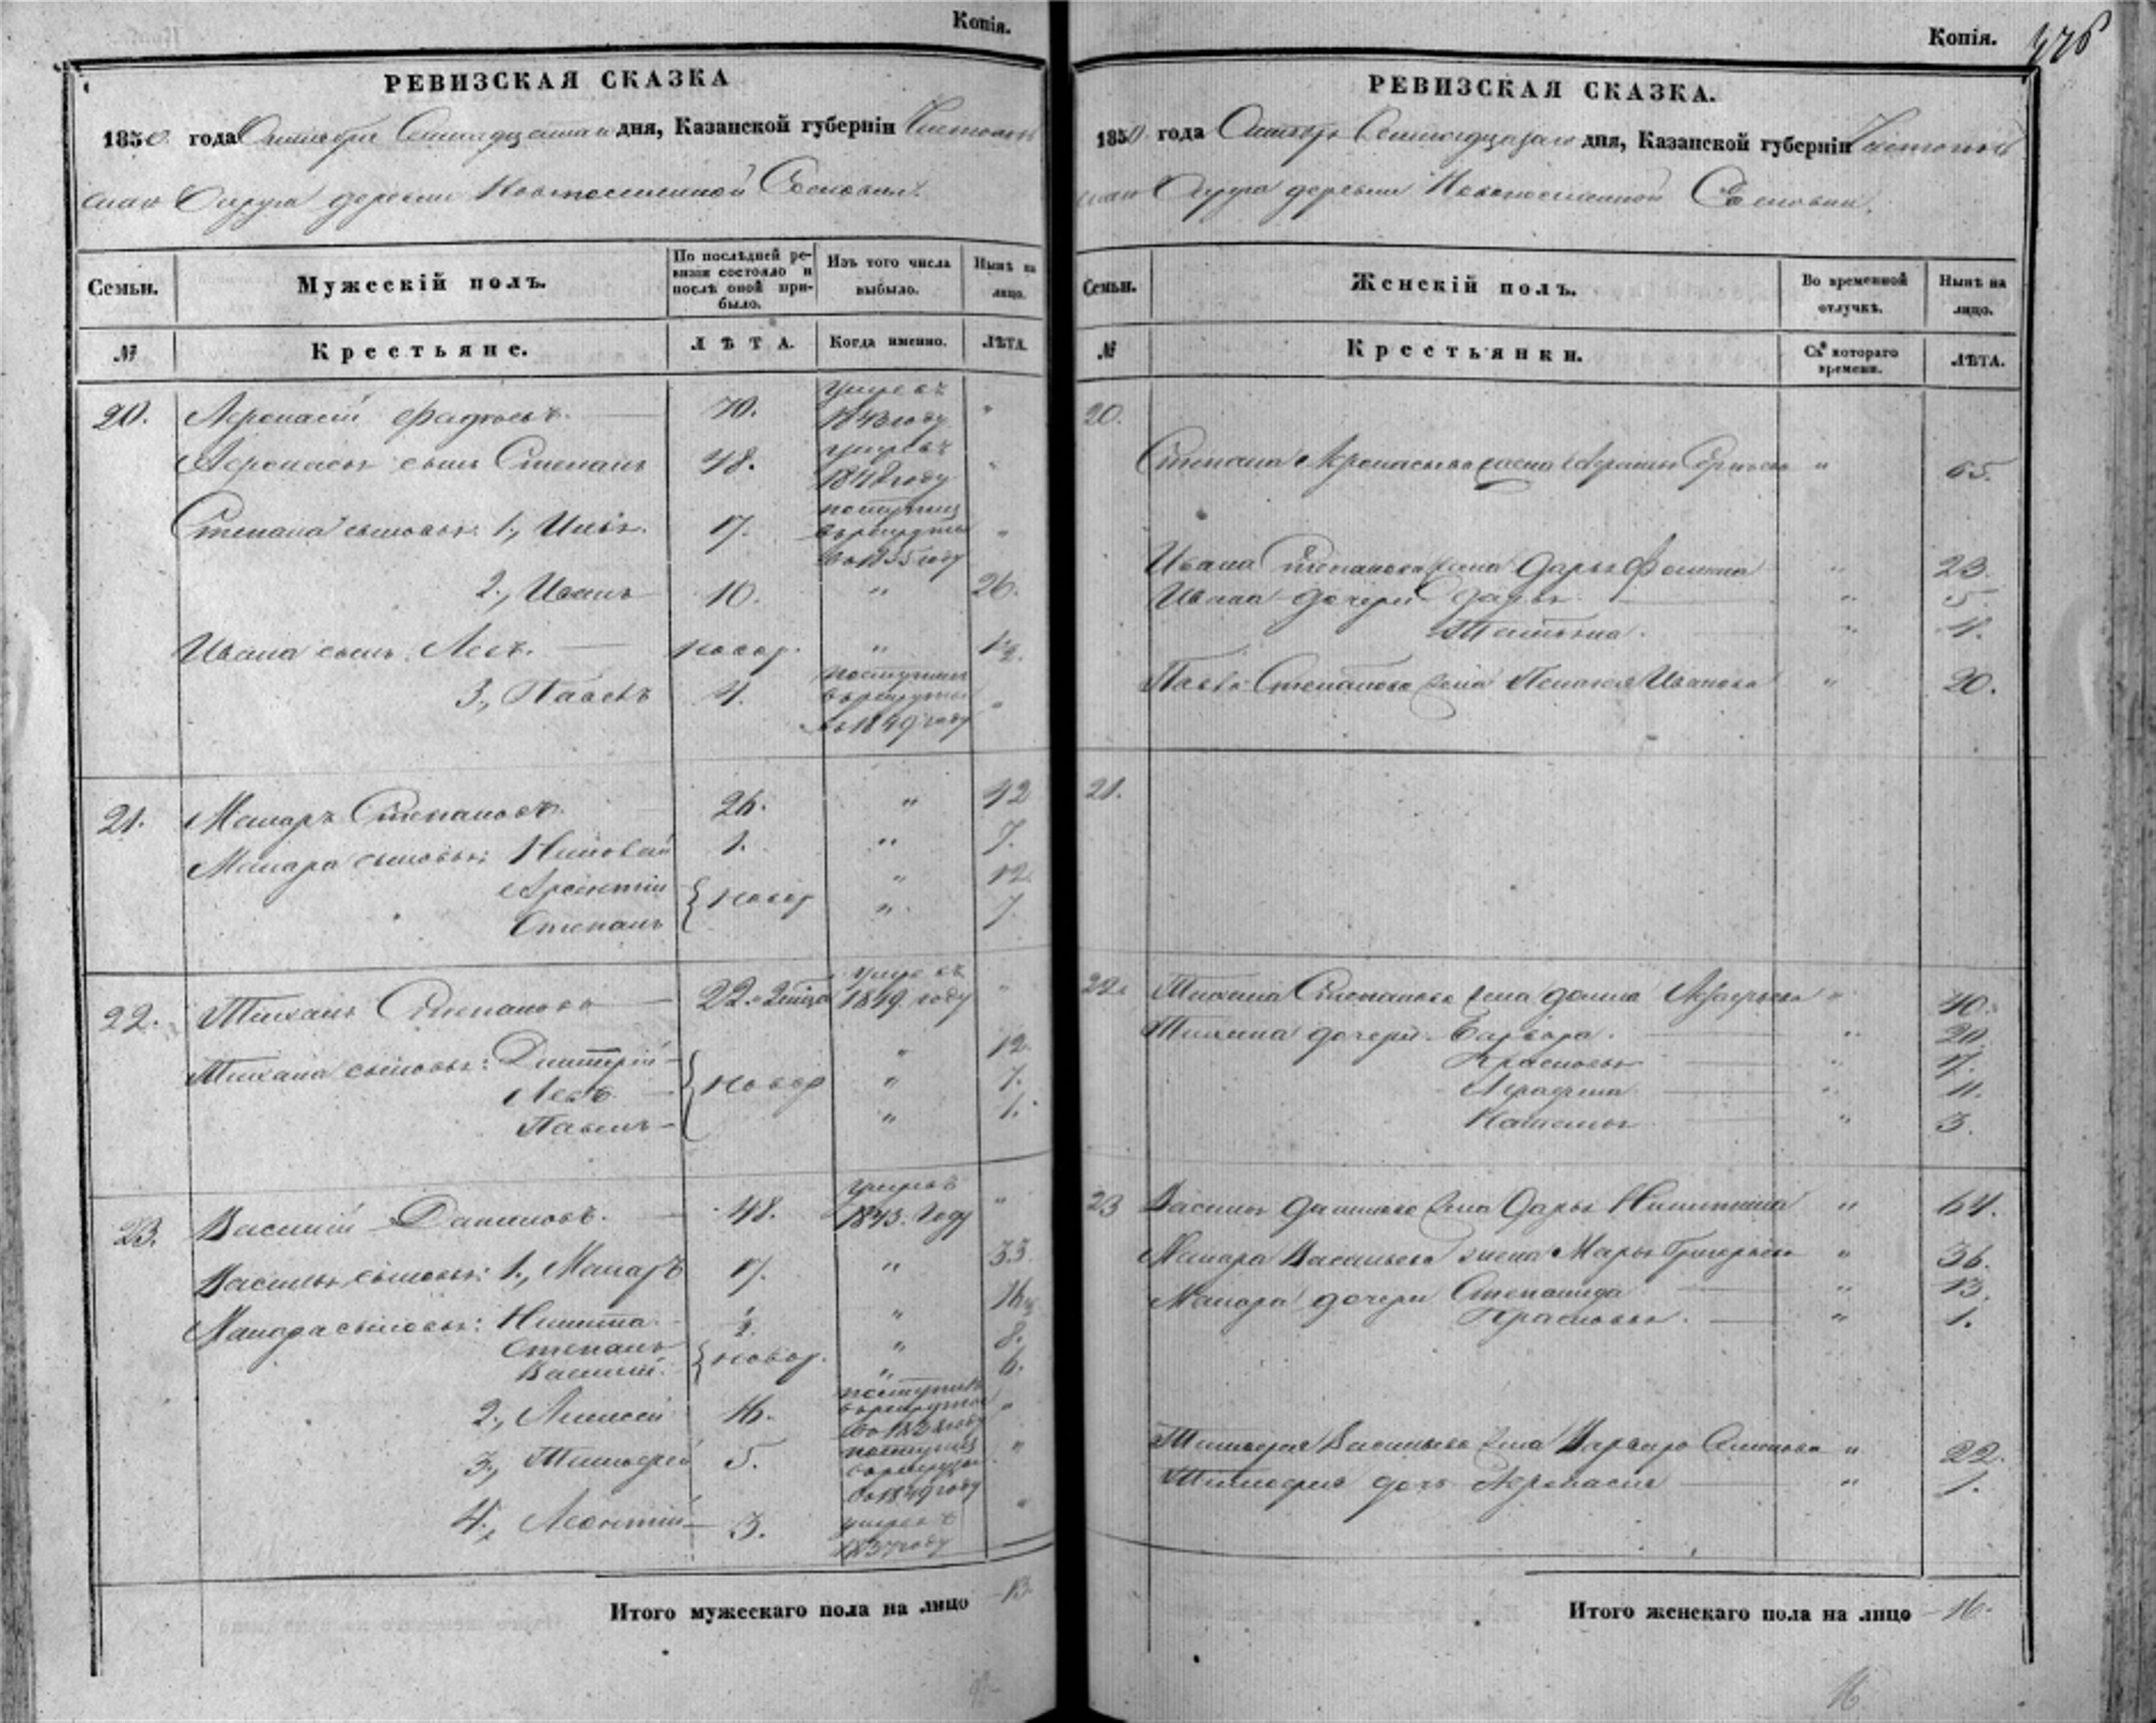 Копія.
РЕВИЗСКАЯ СКАЗКА
1850 года Октября Семнадцатаго дня, Казанской губерніи Чистополь
скаго Округа деревни Новопоселенной Сосновки.
Семьи.
Мужескій полъ.
По послѣдней ре-
визіи состояло и
послѣ оной при-
было.
Изъ того числа
выбыло.
Нынѣ на
лицо.
№
Крестьяне.
ЛѢТА.
Когда именно.
ЛѢТА.
20. Афонасій Фадѣевъ. 70. умре въ 1843 году "
Афонасья сынъ Степанъ 48. умре въ 1848 году "
Степана сыновья: 1., 17. поступилъ в рекруты в 1835 году "
2., Иванъ 10. " 26.
Ивана сынъ Левъ. новор. " 1/2.
3., Павелъ 4. поступилъ в рекруты в 1849 году "
21. Макаръ Степановъ. 26. " 42
Макара сыновья: 1. " 7.
" 12.
Степанъ новор " 7.
22. Тихонъ Степановъ 22. умре въ 1849 году "
Тихана сыновья: Дмитрій " 12.
Левъ новор " 7.
Павелъ " 1.
23. Василій Даниловъ. 48. умре въ 1843. году "
Василья сыновья: 1., Макаръ 17. " 33.
Макара сыновья: Никита 1/2. " 16 1/2
Степанъ новор. " 8.
Василій. " 6.
2., Алексей 16. поступилъ в рекруты "
3., Тимофей 5. поступилъ в рекруты в 1849 году "
4., Леонтій 3. умре въ 1837 году "
Итого мужескаго пола на лицо 13.
Копія.
РЕВИЗСКАЯ СКАЗКА.
1850 года Октября Семнадцатаго дня, Казанской губерніи Чистополь
скаго Округа деревни Новопоселенной Сосновки.
Семьи.
Женскій полъ.
Во временной
отлучкѣ.
Нынѣ на
лицо.
№
Крестьянки.
Съ котораго
времени.
ЛѢТА.
20.
Степана Афонасьева жена " 65.
Ивана Степанова жена Дарья Фомина " 23.
Ивана дочери " 5.
Татьяна. " 4.
Павла Степанова жена Пелагея Иванова " 20.
21.
22. Тихана Степанова жена " 40.
Тихана дочери: Варвара. " 20.
Прасковья " 17.
Аграфена " 11.
Наталья " 3.
23 Василья Данилова жена Дарья Никитина " 64.
Макара Васильева жена Марья Григорьева " 36.
Макара дочери Степанида " 13.
Прасковья. " 1.
Тимофея Васильева жена Варвара " 22.
Тимофея дочь Афонасія " 1.
Итого женскаго пола на лицо 16.
16